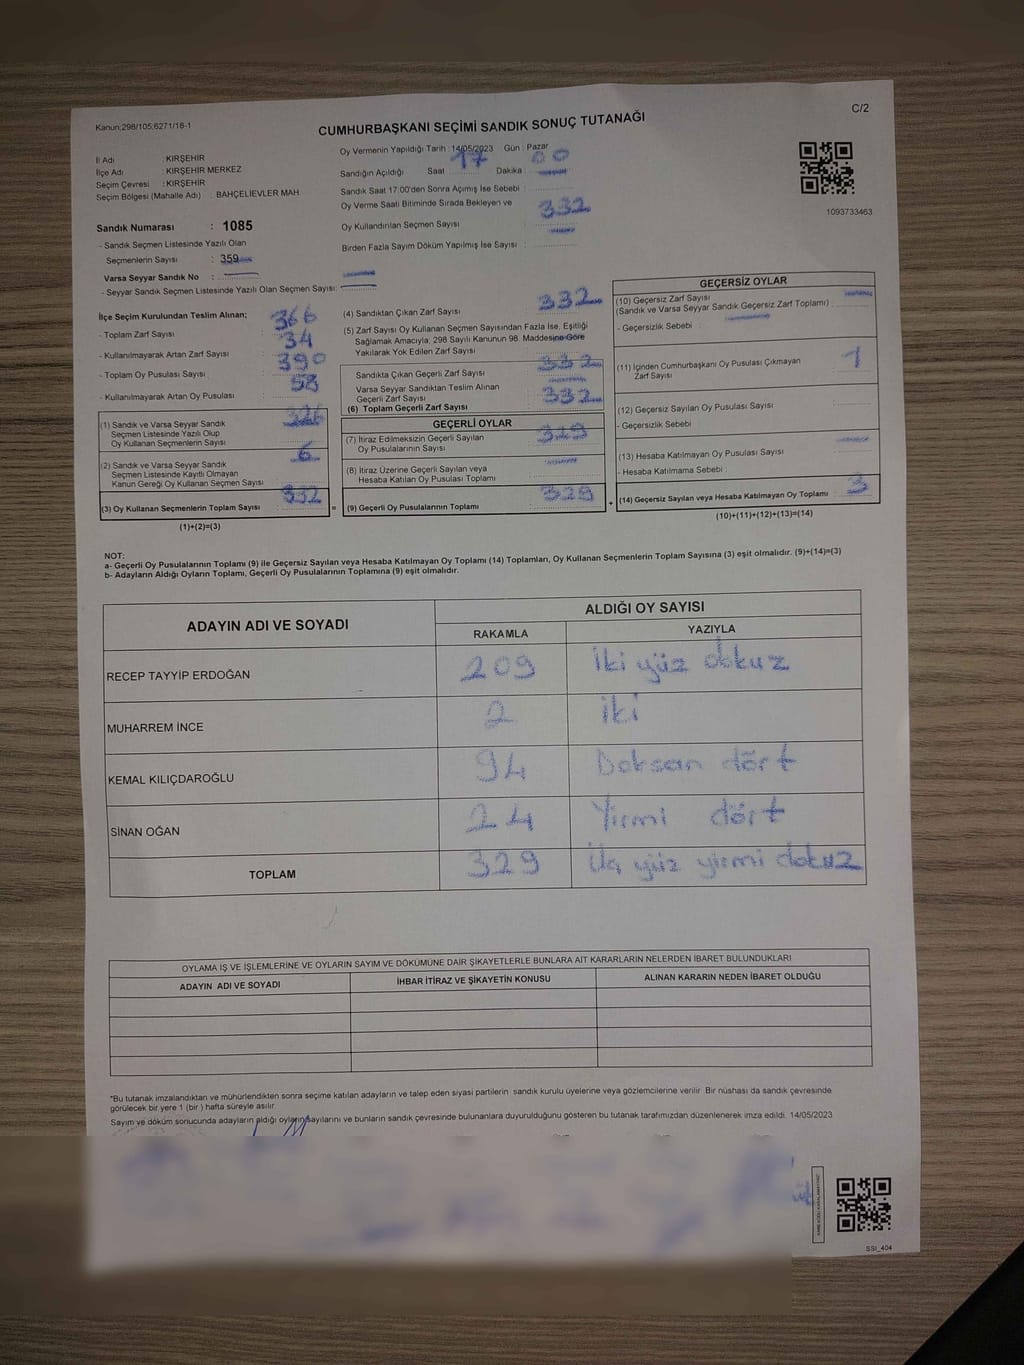 Kanun:298/105;6271/18-1
C/2
CUMHURBAŞKANI SEÇİMİ SANDIK SONUÇ TUTANAĞI
İl Adı : KIRŞEHİR
İlçe Adı : KIRŞEHİR MERKEZ
Seçim Çevresi : KIRŞEHİR
Seçim Bölgesi (Mahalle Adı) : BAHÇELİEVLER MAH.
Oy Vermenin Yapıldığı Tarih : 14/05/2023 Gün : Pazar
Sandığın Açıldığı Saat 17 Dakika 00
Sandık Saat 17:00'den Sonra Açımış İse Sebebi :
Oy Verme Saati Bitiminde Sırada Bekleyen ve
Oy Kullandırılan Seçmen Sayısı 332
Birden Fazla Sayım Döküm Yapılmış İse Sayısı :
1093733463
Sandık Numarası : 1085
- Sandık Seçmen Listesinde Yazılı Olan
Seçmenlerin Sayısı : 359
Varsa Seyyar Sandık No :
- Seyyar Sandık Seçmen Listesinde Yazılı Olan Seçmen Sayısı:
İlçe Seçim Kurulundan Teslim Alınan;
- Toplam Zarf Sayısı : 366
- Kullanılmayarak Artan Zarf Sayısı : 34
- Toplam Oy Pusulası Sayısı : 390
- Kullanılmayarak Artan Oy Pusulası : 58
(1) Sandık ve Varsa Seyyar Sandık
Seçmen Listesinde Yazılı Olup
Oy Kullanan Seçmenlerin Sayısı 326
(2) Sandık ve Varsa Seyyar Sandık
Seçmen Listesinde Kayıtlı Olmayan
Kanun Gereği Oy Kullanan Seçmen Sayısı 6
(3) Oy Kullanan Seçmenlerin Toplam Sayısı 332
(1)+(2)=(3)
=
(4) Sandıktan Çıkan Zarf Sayısı : 332
(5) Zarf Sayısı Oy Kullanan Seçmen Sayısından Fazla İse, Eşitliği
Sağlamak Amacıyla; 298 Sayılı Kanunun 98. Maddesine Göre
Yakılarak Yok Edilen Zarf Sayısı
Sandıkta Çıkan Geçerli Zarf Sayısı 332
Varsa Seyyar Sandıktan Teslim Alınan
Geçerli Zarf Sayısı
(6) Toplam Geçerli Zarf Sayısı 332
GEÇERLİ OYLAR
(7) İtiraz Edilmeksizin Geçerli Sayılan
Oy Pusulalarının Sayısı 329
(8) İtiraz Üzerine Geçerli Sayılan veya
Hesaba Katılan Oy Pusulası Toplamı
(9) Geçerli Oy Pusulalarının Toplamı 329
+
GEÇERSİZ OYLAR
(10) Geçersiz Zarf Sayısı
(Sandık ve Varsa Seyyar Sandık Geçersiz Zarf Toplamı) :
- Geçersizlik Sebebi :
(11) İçinden Cumhurbaşkanı Oy Pusulası Çıkmayan
Zarf Sayısı 1
(12) Geçersiz Sayılan Oy Pusulası Sayısı
- Geçersizlik Sebebi :
(13) Hesaba Katılmayan Oy Pusulası Sayısı
- Hesaba Katılmama Sebebi :
(14) Geçersiz Sayılan veya Hesaba Katılmayan Oy Toplamı 3
(10)+(11)+(12)+(13)=(14)
NOT:
a- Geçerli Oy Pusulalarının Toplamı (9) ile Geçersiz Sayılan veya Hesaba Katılmayan Oy Toplamı (14) Toplamları, Oy Kullanan Seçmenlerin Toplam Sayısına (3) eşit olmalıdır. (9)+(14)=(3)
b- Adayların Aldığı Oyların Toplamı, Geçerli Oy Pusulalarının Toplamına (9) eşit olmalıdır.
ADAYIN ADI VE SOYADI
ALDIĞI OY SAYISI
RAKAMLA YAZIYLA
RECEP TAYYİP ERDOĞAN 209 İki yüz dokuz
MUHARREM İNCE 2 iki
KEMAL KILIÇDAROĞLU 94 Doksan dört
SİNAN OĞAN 24 Yirmi dört
TOPLAM 329 Üç yüz yirmi dokuz
OYLAMA İŞ VE İŞLEMLERİNE VE OYLARIN SAYIM VE DÖKÜMÜNE DAİR ŞİKAYETLERLE BUNLARA AİT KARARLARIN NELERDEN İBARET BULUNDUKLARI
ADAYIN ADI VE SOYADI İHBAR İTİRAZ VE ŞİKAYETİN KONUSU ALINAN KARARIN NEDEN İBARET OLDUĞU
*Bu tutanak imzalandıktan ve mühürlendikten sonra seçime katılan adayların ve talep eden siyasi partilerin sandık kurulu üyelerine veya gözlemcilerine verilir. Bir nüshası da sandık çevresinde
görülecek bir yere 1 (bir ) hafta süreyle asılır.
Sayım ve döküm sonucunda adayların aldığı oyların sayılarını ve bunların sandık çevresinde bulunanlara duyurulduğunu gösteren bu tutanak tarafımızdan düzenlenerek imza edildi. 14/05/2023
SSI_404